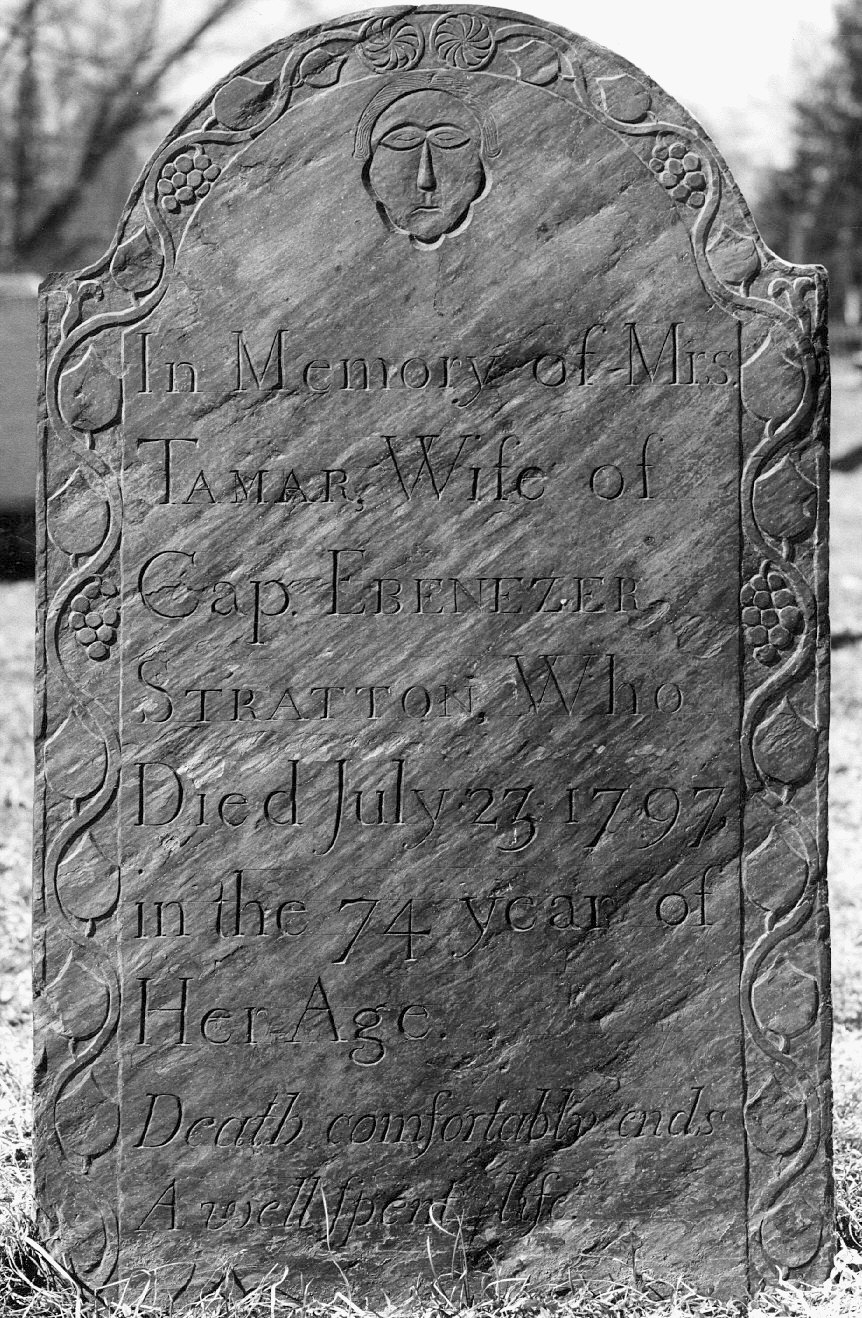 In Memory of Mrs.
TAMAR, Wife of
Cap. EBENEZER,
STRATTON, Who
Died July 23, 1797,
in the 74 year of
Her Age.
Death comfortably ends
A well ſpent life.